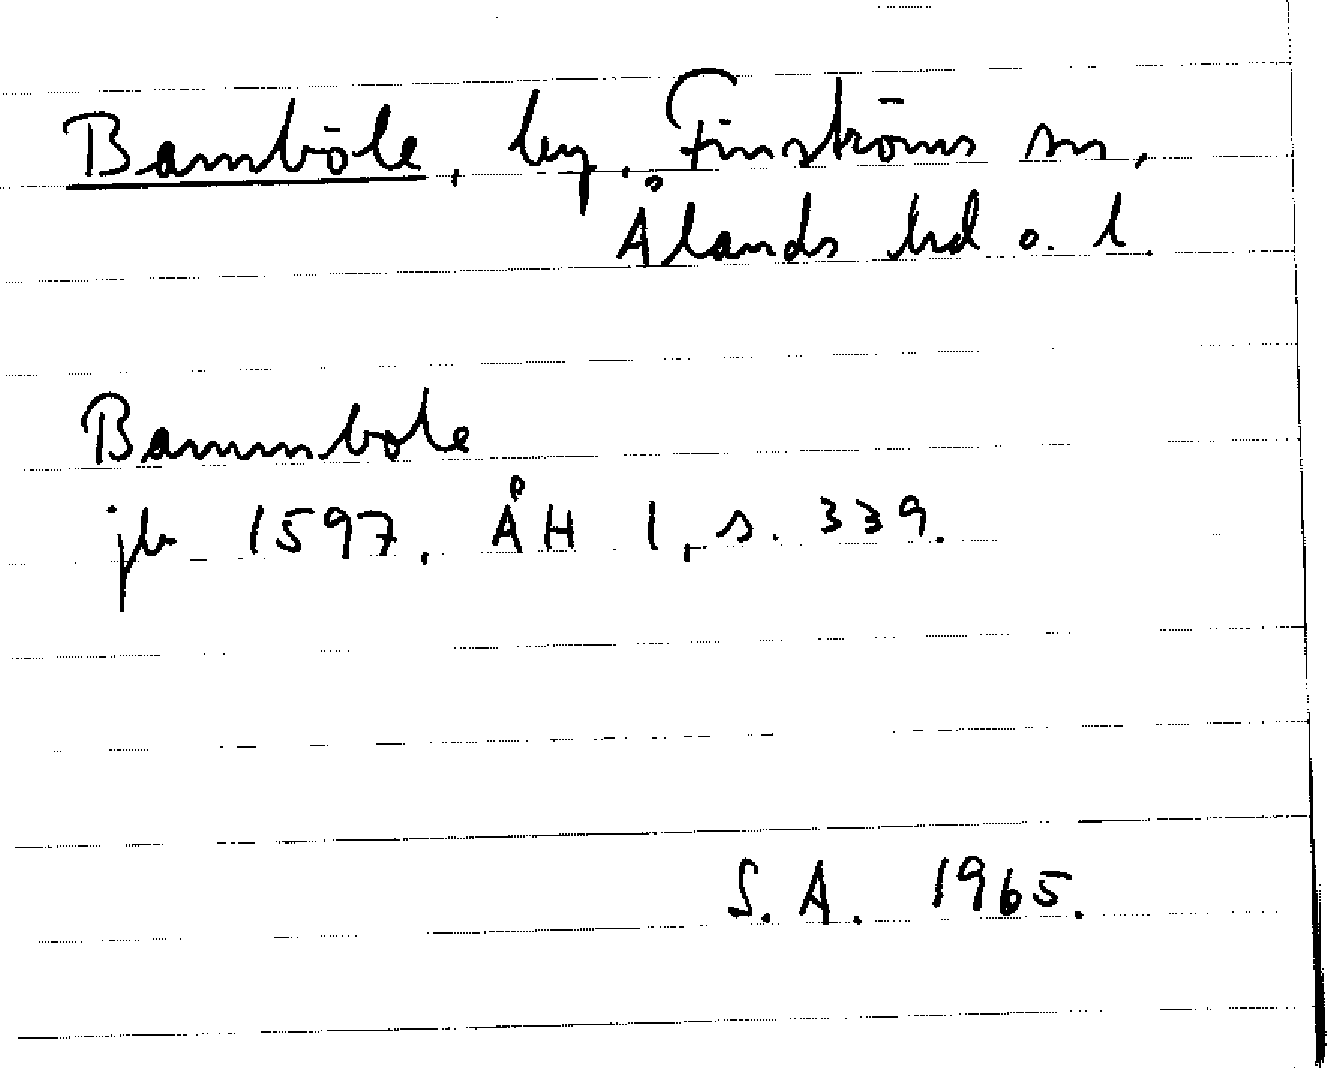 Bamböle, by, Finströms sn,
Ålands hd o. l.
Bammbole
jb 1597. ÅH I, s. 339.
S. A. 1965.